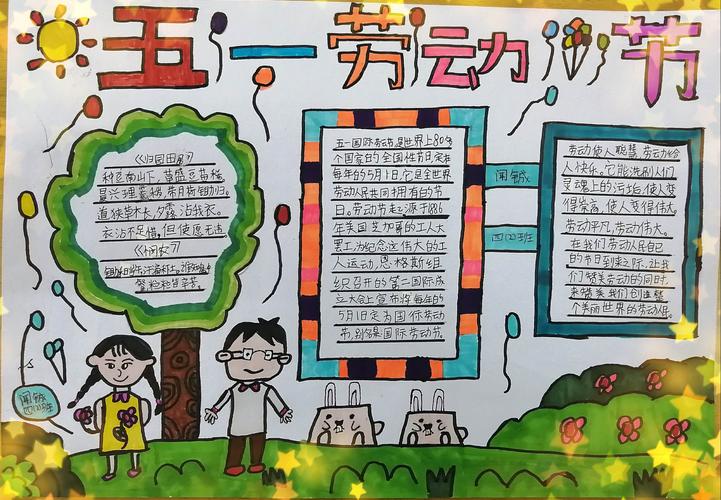 五一劳动节
《归园田居》
种豆南山下,草盛豆苗稀,
晨兴理荒秽,带月荷锄归。
道狭草木长,夕露沾我衣。
衣沾不足惜,但使愿无违
《悯农》
锄禾日当午,汗滴禾下土。谁知盘中餐
粒粒皆辛苦。
五一国际劳动节是世界上80多
个国家的全国性节日,定在
每年的5月1日,它是全世界
劳动人民共同拥有的节
日。劳动节起源于1886
年美国芝加哥的工人大
罢工,为纪念这伟大的工
人运动,恩格斯组
织召开的第二国际成
立大会上宣布将每年的
5月1日定为国际劳动
节,别名是国际劳动节。
四(2)班
劳动使人聪慧,劳动给
人快乐。它能洗刷人们
灵魂上的污垢,使人变
得崇高,使人变得伟大。
劳动平凡,劳动伟大。
在我们劳动人民自己
的节日到来之际,让我
们赞美劳动的同时,
来赞美我们创造整
个美丽世界的劳动人民。
四(2)班